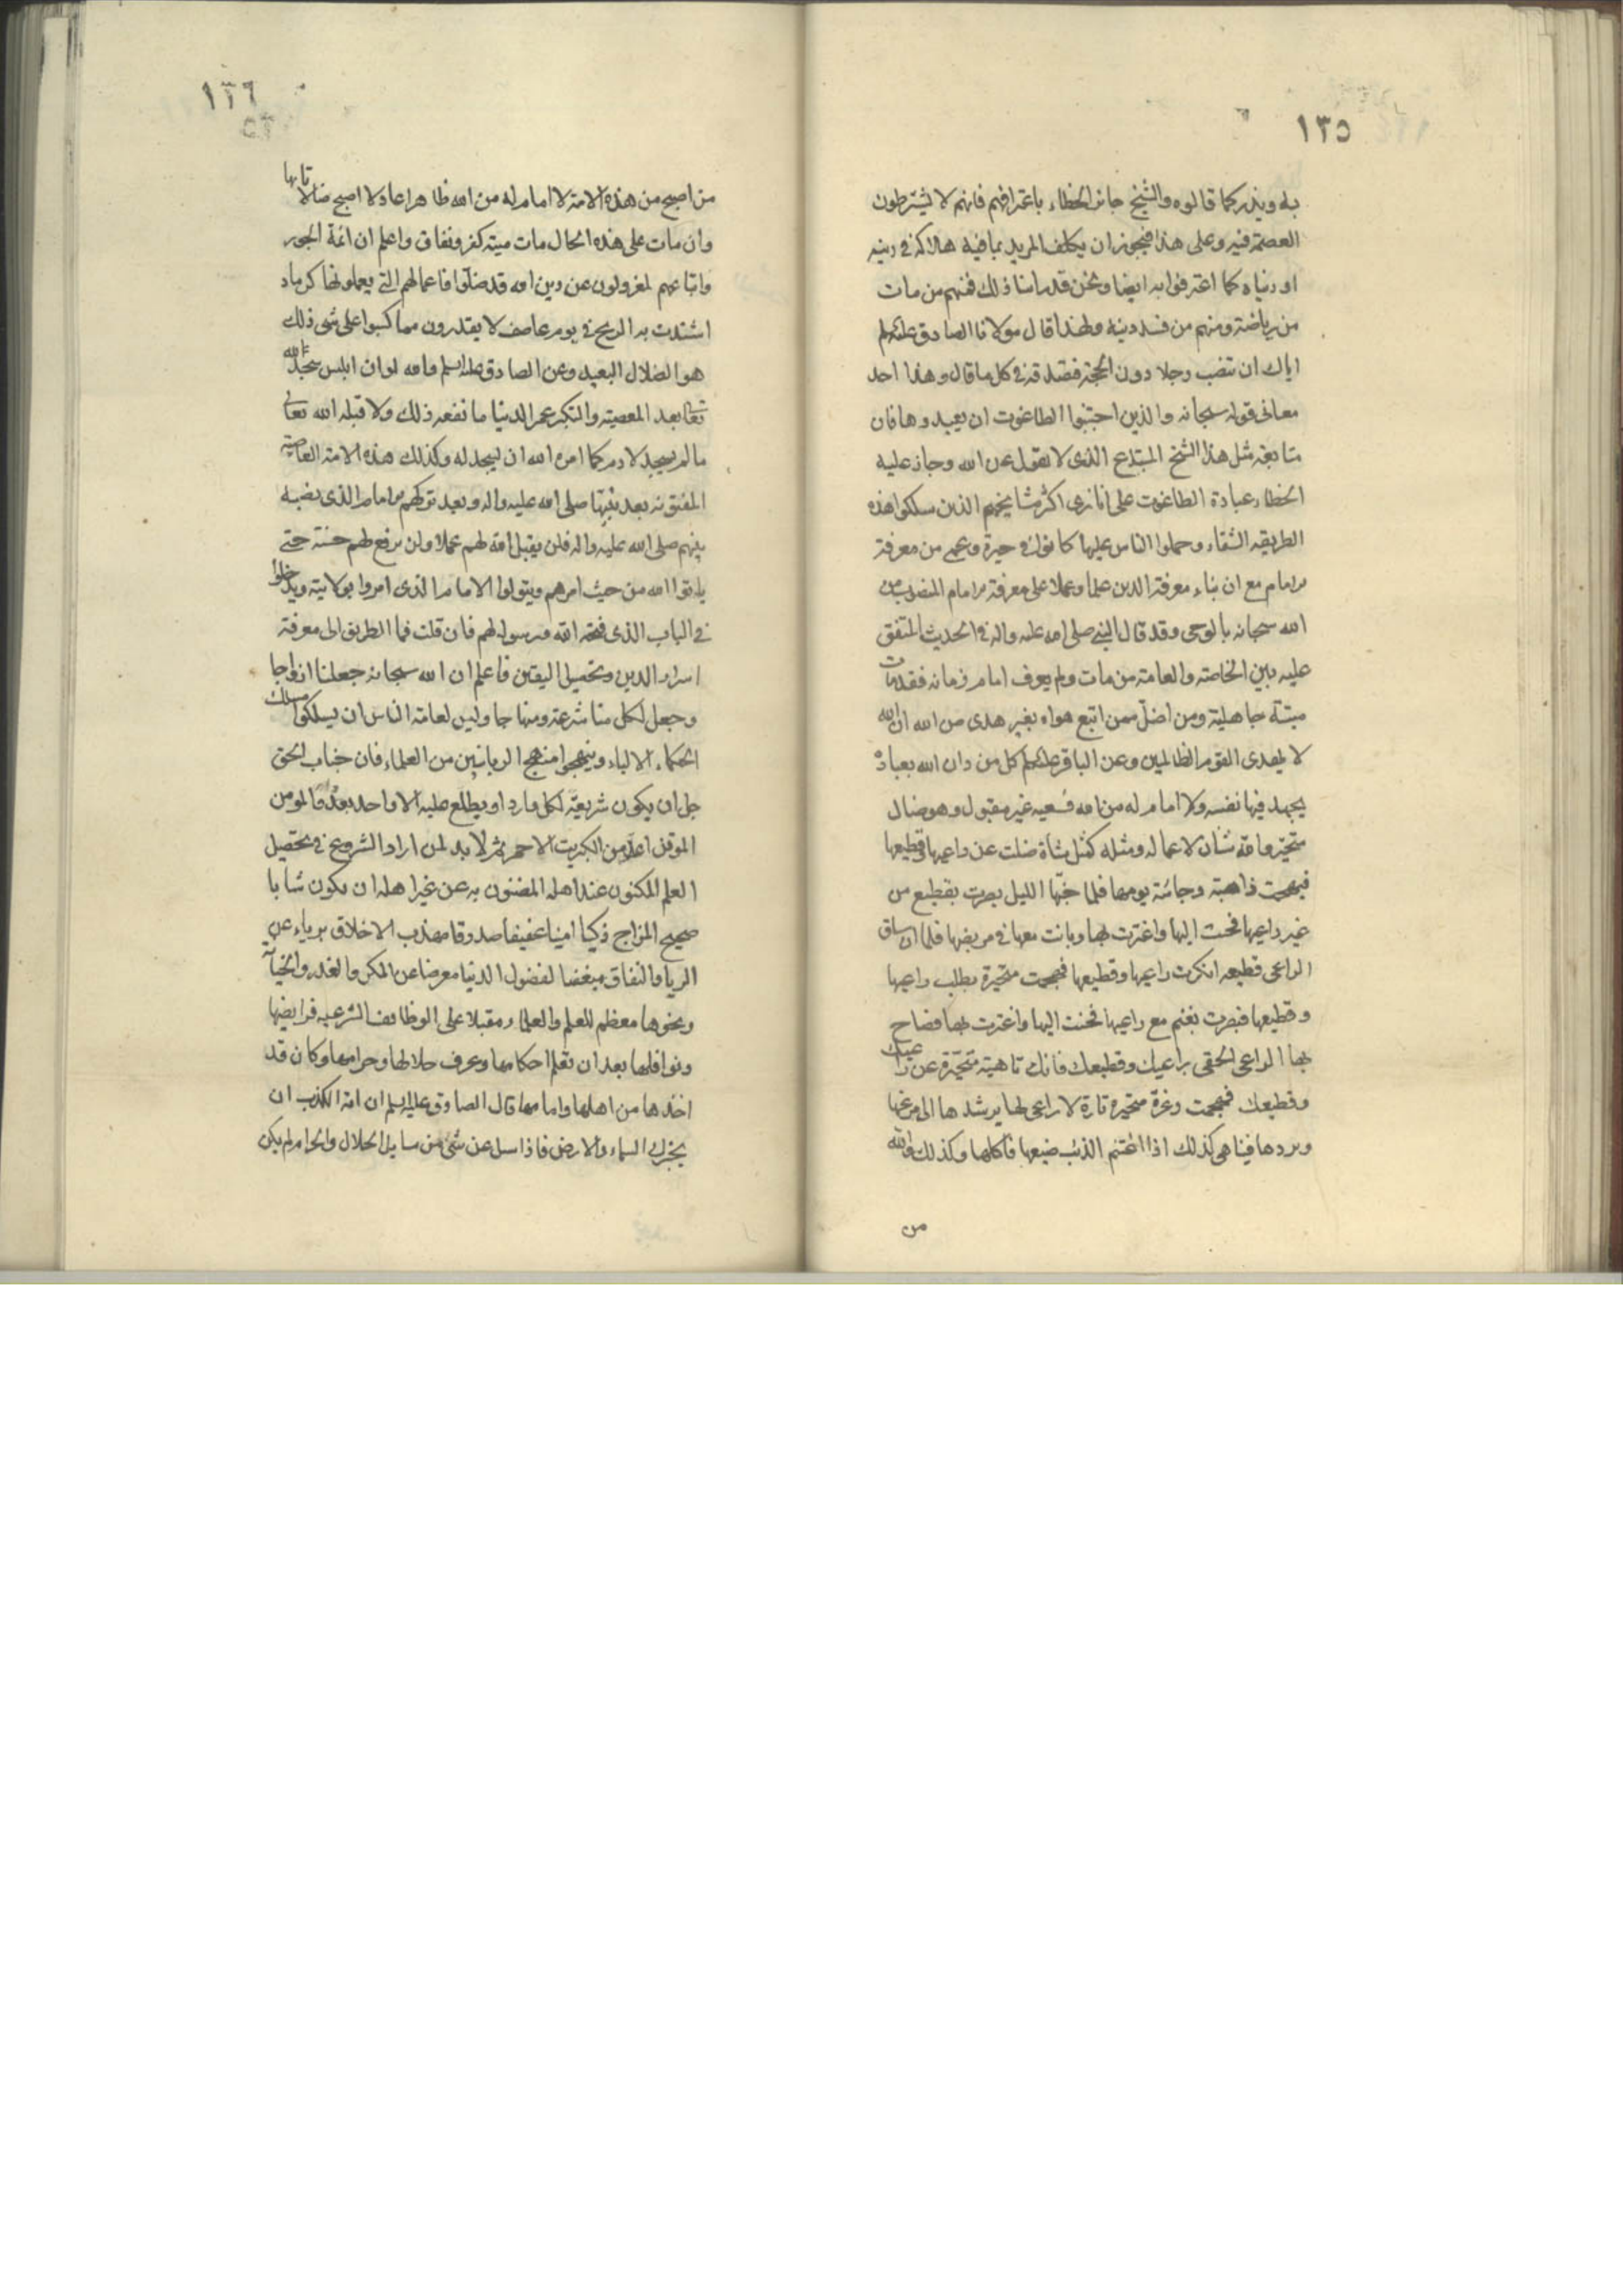 ١٣٥
بله ويذر كما قالوه والشيخ جائز الخطاء باعترافهم فانهم لا يشترطون
العصمة فيه وعلى هذا فيجوز ان يكلف المريد بما فيه هلاكه في دينه
او دنياه كما اعترفوا به ايضا ونحن قد راينا ذلك فمنهم من مات
من رياضته ومنهم من فسد دينه ولهذا قال مولانا الصادق عليه السلم
اياك ان تنصب رجلا دون الحجة فتصدقه في كل ما قال وهذا احد
معانى قوله سبحانه والذين اجتنبوا الطاغوت ان يعبدوها فان
متابعة مثل هذا الشيخ المبتدع الذى لا يقول عن الله وجاز عليه
الخطاء عبادة الطاغوت على انا نرى اكثر مشايخهم الذين سلكوا هذه
الطريقه الشقاء وحملوا الناس عليها كانوا في حيرة وعمى من معرفة
الامام مع ان بناء معرفة الدين علما وعملا على معرفة الامام المنصوب من
الله سبحانه بالوحى وقد قال النبي صلى الله عليه واله في الحديث المتفق
عليه بين الخاصة والعامة من مات ولم يعرف امام زمانه فقد مات
ميتة جاهلية ومن اضل ممن اتبع هواه بغير هدى من الله ان الله
لا يهدى القوم الظالمين وعن الباقر عليه السلم كل من دان الله بعبادة
يجهد فيها نفسه ولا امام له من الله فسعيه غير مقبول وهو ضال
متحير والله شانئ لاعماله ومثله كمثل شاة ضلت عن راعيها وقطيعها
فهجمت ذاهبة وجائية يومها فلما جنها الليل بصرت بقطيع من
غير راعيها فحنت اليها واغترت بها وباتت معها في مربضها فلما ان ساق
الراعى قطيعه انكرت راعيها وقطيعها فهجمت متحيرة بطلب راعيها
وقطيعها فبصرت بغنم مع راعيها فحنت اليها واغترت بها فصاح
بها الراعى الحقى براعيك وقطيعك فانك تاهية متحيرة عن راعيك
وقطيعك فهجمت ذعرة متحيره تارة لا راعى لها يرشدها الى مرعيها
ويردها فبينا هى كذلك اذا اغتنم الذئب ضيعها فاكلها وكذلك والله
من
١٣٦
٥٣
من اصبح من هذه الامة لا امام له من الله ظاهرا عادلا اصبح ضالا تايها
وان مات على هذه الحال مات ميته كفر ونفاق واعلم ان ائمة الجور
واتباعهم لمعزولون عن دين الله قد ضلوا فاعمالهم التي يعملونها كرماد
اشتدت به الريح في يوم عاصف لا يقدرون مما كسبوا على شى ذلك
هو الضلال البعيد وعن الصادق عليه السلم والله لو ان ابليس سجد لله
تعالى بعد المعصية والتكبر عمر الدنيا ما نفعه ذلك ولا قبله الله تعالى
ما لم يسجد لادم كما امره الله ان يسجد له وكذلك هذه الامة العاصية
المفتونة بعد نبيها صلى الله عليه واله وبعد تركهم الامام الذى نصبه
نبيهم صلى الله عليه واله فلن يقبل الله لهم عملا ولن يرفع لهم حسنة حتى
ياتوا الله من حيث امرهم ويتولوا الامام الذى امروا بولايته ويدخلوا
في الباب الذى فتحه الله ورسوله لهم فان قلت فما الطريق الى معرفة
اسرار الدين وتحصيل اليقين فاعلم ان الله سبحانه جعلنا ازواجا
وجعل لكل منا شرعة ومنهاجا وليس لعامة الناس ان يسلكوا مسلك
الحكماء الالباء وينهجوا منهج الربانيين من العلماء فان جناب الحق
جل ان يكون شريعة لكل وارد او يطلع عليه الا واحد بعد واحد فالمومن
الموقن اعز من الكبريت الاحمر ثم لابد لمن اراد الشروع في تحصيل
العلم المكنون عند اهله المضنون به عن غير اهله ان يكون شابا
صحيح المزاج ذكيا امينا عفيفا صدوقا مهذب الاخلاق برياء عن
الريا والنفاق مبغضا لفضول الدنيا معرضا عن المكر والغدر والخيانة
ونحوها معظم للعلم والعلماء مقبلا على الوظائف الشرعيه فرايضها
ونوافلها بعد ان تعلم احكامها وعرف حلالها وحرامها وكان قد
اخذها من اهلها وامامها قال الصادق عليه السلم ان اية الكذب ان
يخبرك السماء والارض فاذا سل عن شئ من مسايل الحلال والحرام لم يكن